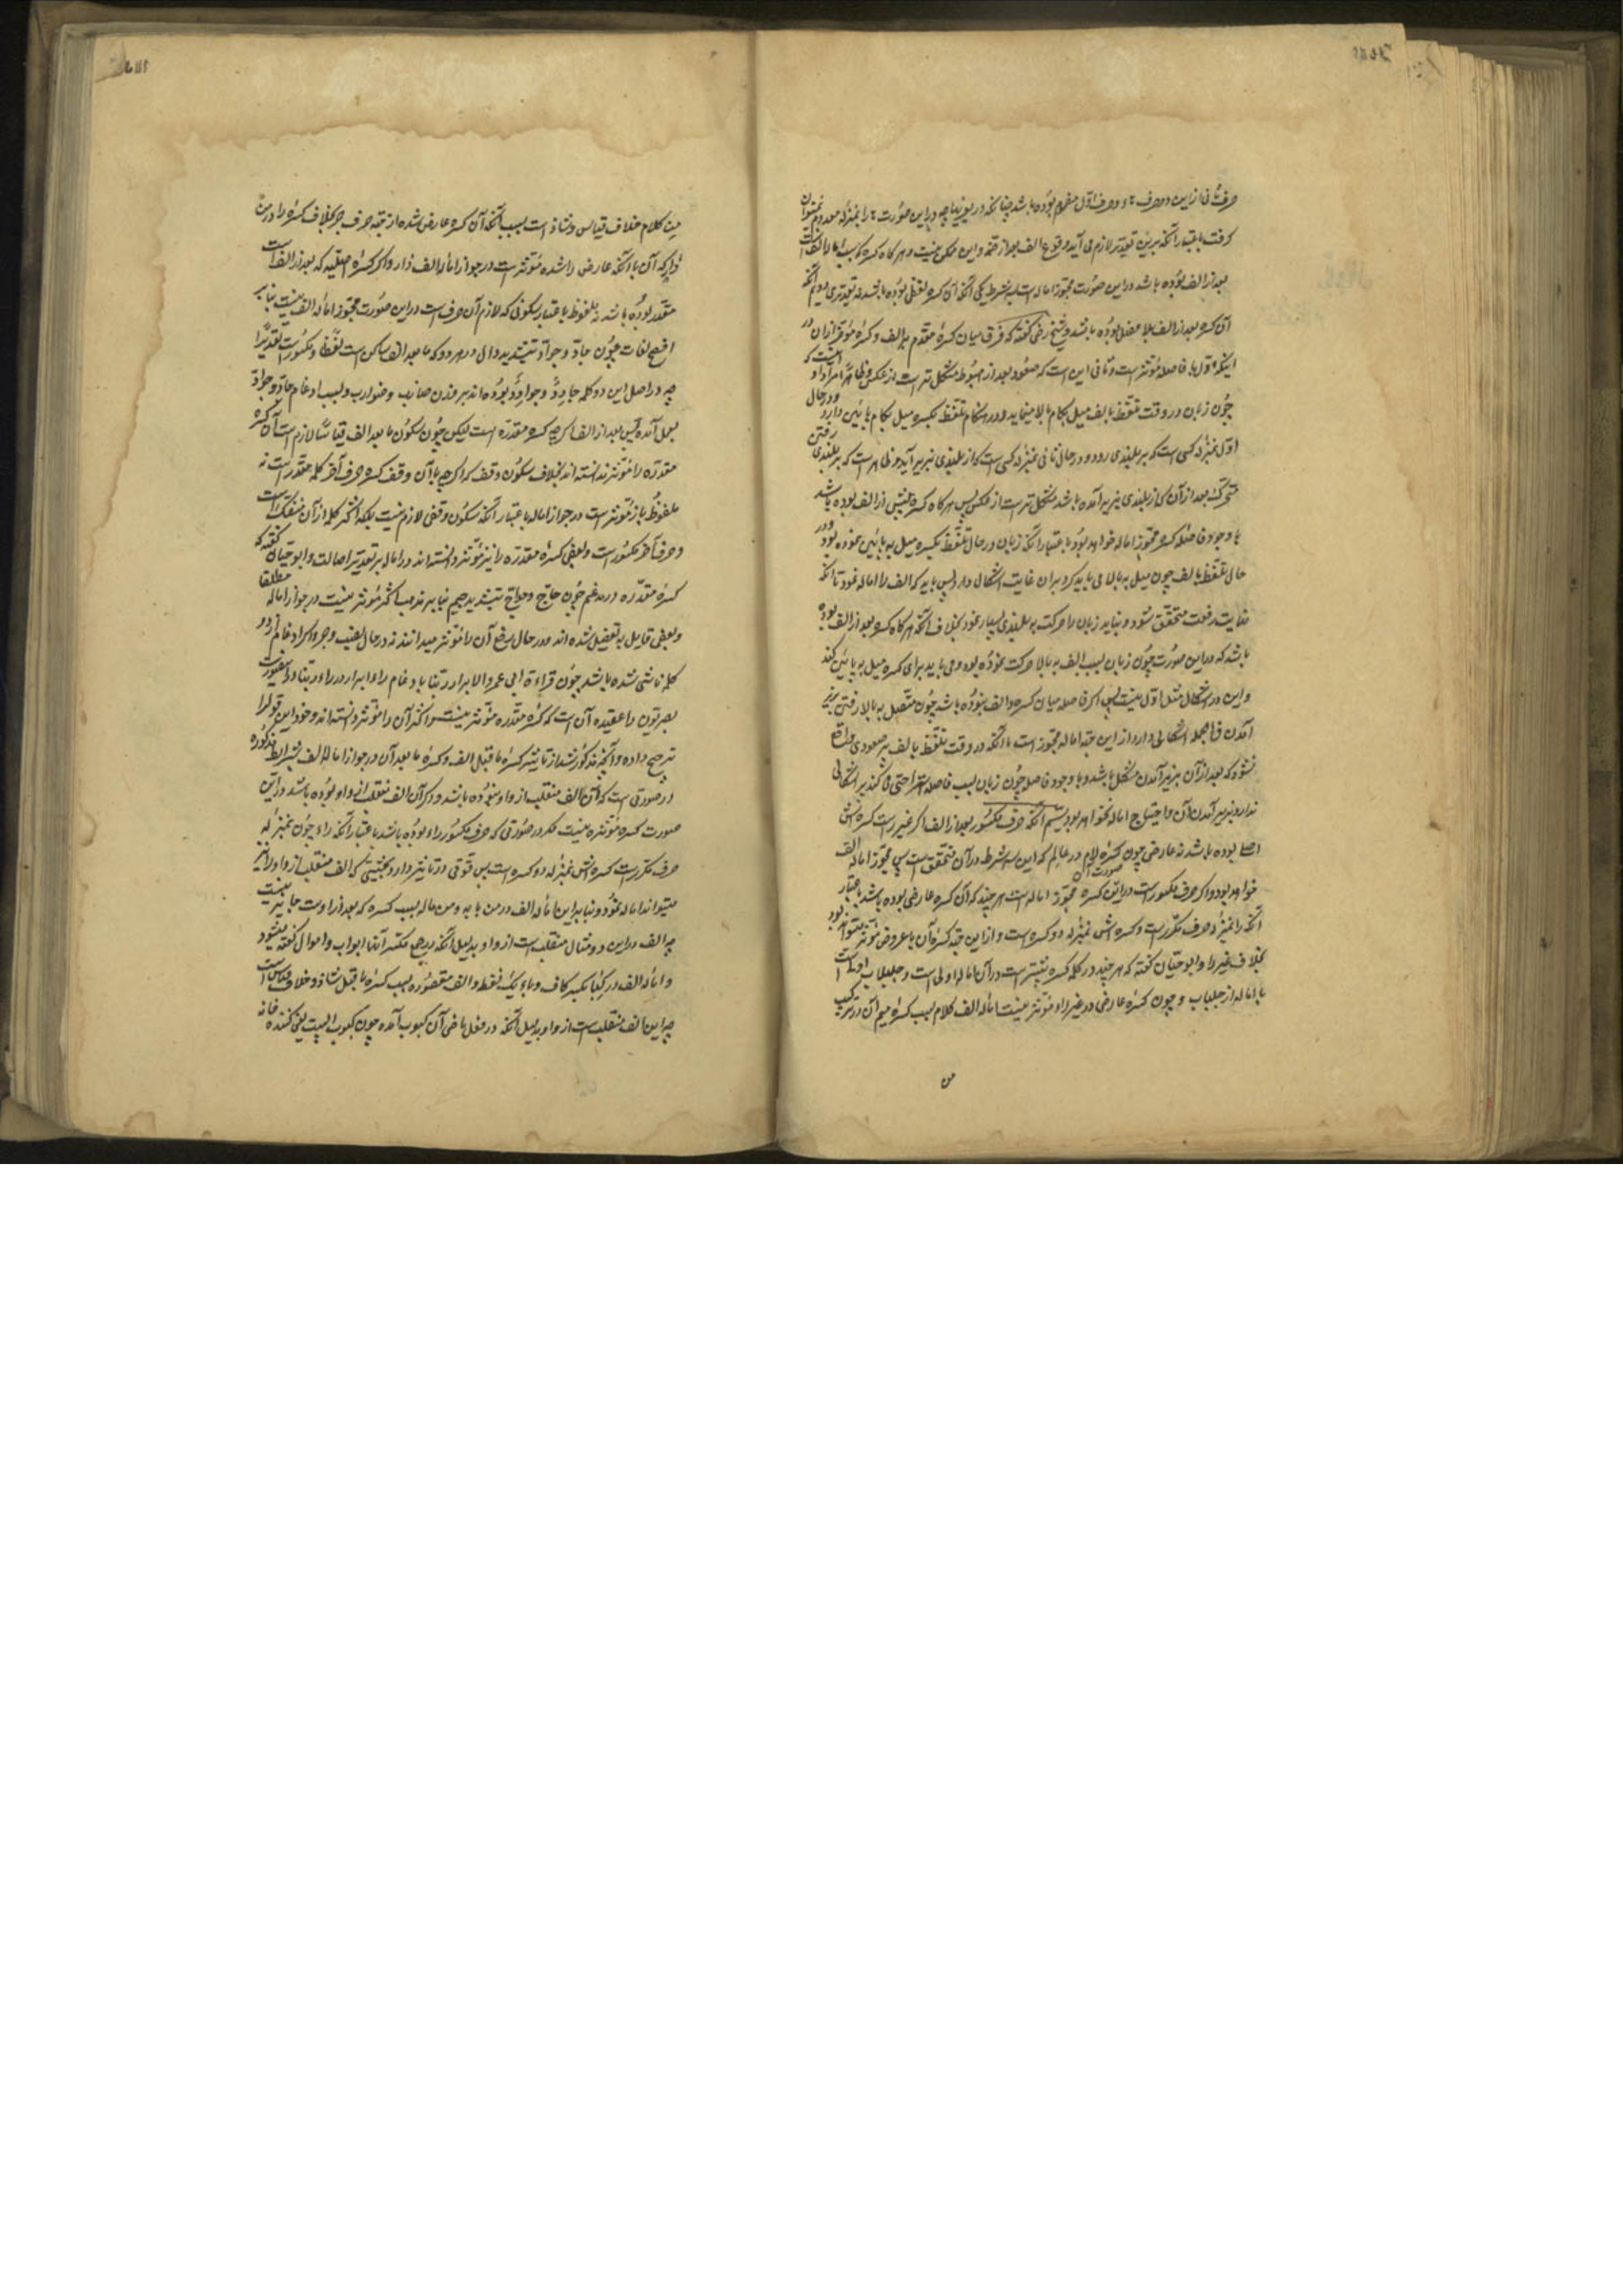 حرف ثانی از این دو حرف هاء و حرف اوّل مفتوح بوده باشد چنانکه در یوزنیها چه در این صورت هاء را بمنزله معدوم نمیتوان
گرفت باعتبار آنکه برین تقدیر لازم می آید وقوع الف بعد از ضمّه و این ممکن نیست و هر گاه کسره که سبب امالهٔ الف است
بعد از الف بوده باشد در این صورت مجوّز اماله است بسه شرط یکی آنکه آن کسره لفظی بوده باشد نه تقدیری دویّم آنکه
آن کسره بعد از الف بلا فصل بوده باشد و شیخ رضی گفته که فرق میان کسرهٔ مقدّم بر الف و کسرهٔ مؤخّر از آن در
اینکه اوّل با فاصله مؤثر است و ثانی این است که صعود بعد از هبوط مشکل تر است از عکس و ظاهراً مراد او اینست که
چون زبان در وقت تلفّظ بالف میل بکام بالا مینماید و در هنگام تلفّظ بکسره میل بکام پائین دارد و در حال
اوّل بمنزلهٔ کسی است که بر بلندی رود و در حال ثانی بمنزلهٔ کسی است که از بلندی بزیر آید و ظاهر است که بر بلندی رفتن
متحرّک بعد از آن که از بلندی بزیر آمده باشد مشکل تر است از عکس پس هر گاه کسره پیش از الف بوده باشد
با وجود فاصله کسره مجوّز اماله خواهد بود باعتبار آنکه زبان در حال تلفّظ بکسره میل به پائین نموده بود و در
حال تلفّظ بالف چون میل به بالا می باید کرد و بر آن غایت اشکال دارد پس باید که الف را اماله نمود تا آنکه
غایت رفعت متحقق نشود و نباید زبان را حرکت به بلندی بسیار نمود بخلاف آنکه هر گاه کسره بعد از الف بوده
باشد که در این صورت چون زبان بسبب الف به بالا حرکت نموده بود و می باید برای کسره میل به پایین کند
و این در اشکال مثل اوّل نیست پس اگر فاصله میان کسره و الف نبوده باشد چون متّصل به بالا رفتن بزیر
آمدن فی الجمله اشکالی دارد از این جهة اماله مجوّز است تا آنکه در وقت تلفّظ بالف پر صعودی واقع
نشود که بعد از آن بزیر آمدن مشکل باشد و با وجود فاصله چون زبان بسبب فاصله استراحتی می کند پر اشکالی
ندارد بزیر آمدن آن و احتیاج اماله نخواهد بود سیّم آنکه حرف مکسور بعد از الف اگر غیر را است کسره اش
اصلی بوده باشد نه عارضی چون کسرهٔ لام در عالِم که این سه شرط در آن متحقق است پس مجوّز امالهٔ الف
خواهد بود و اگر حرف مکسور را است در این صورت آن کسره مجوّز اماله است هر چند که آن کسره عارضی بوده باشد باعتبار
آنکه را بمنزلهٔ حرف مکرّر است و کسره اش بمنزله دو کسره است و از این جهة کسرهٔ آن با عروض مؤثر میتواند بود
بخلاف غیر را و ابو حیّان گفته که هر چند در کلمه کسره بیشتر است در آن اماله اولی است و جلبلاب اولی است
باماله از جلباب و چون کسرهٔ عارضی در غیر راء مؤثر نیست امالهٔ الف کلام بسبب کسرهٔ میم آن در ترکیب
من
مِن کلام خلاف قیاس و شاذ است بسبب آنکه آن کسره عارض شده از جهة حرف جر بخلاف کسره را در من
دار که آن با آنکه عارض را شده مؤثر است در جواز امالهٔ الف دار و اگر کسرهٔ اصلیه که بعد از الف است
مقدّر بوده باشد نه ملفوظ باعتبار سکونی که لازم آن حرف است در این صورت مجوّز امالهٔ الف نیست بنابر
افصح لغات چون جادّ و جوادّ بتشدید دال در هر دو که ما بعد الف ساکن است لفظاً و مکسور است تقدیراً
چه در اصل این دو کلمه جادِدٌ و جوادِدٌ بوده اند بر وزن ضارب و ضوارب و بسبب ادغام جادّ و جوادّ
بعمل آمده پس بعد از الف اگر چه کسره مقدّره است لیکن چون سکون ما بعد الف قیاساً لازم است آن کسره
مقدّره را مؤثر ندانسته اند بخلاف سکون وقف که اگر چه با آن وقف کسره حرف آخر کلمه مقدّر است نه
ملفوظ باز مؤثر است در جواز اماله باعتبار آنکه سکون وقفی لازم نیست بلکه اکثر کلمه از آن منفک است
و حرف آخر مکسور است و بعضی کسرهٔ مقدّره را نیز مؤثر دانسته اند در اماله بر تقدیر اصالت و ابو حیّان گفته که
کسرهٔ مقدّره در مدغم چون حاجّ و حواجّ بتشدید جیم بنابر مذهب اکثر مؤثر نیست در جواز اماله مطلقا
و بعضی قایل به تفصیل شده اند و در حال رفع آن را مؤثر میدانند نه در حال نصب و جر و اگر ادغام از دو
کلمه ناشی شده باشد چون قراءة ابی عمرو الابرار ربّنا بادغام راء ابرار در راء ربّنا در این صورت
بصریّون را عقیده آن است که کسرهٔ مقدّره مؤثر نیست و اکثر آن را مؤثر دانسته اند و خود این قول را
ترجیح داده و آنچه مذکور شد از تأثیر کسرهٔ ما قبل الف و کسرهٔ ما بعد آن در جواز امالهٔ الف بشرایط مذکوره
در صورتی است که آن الف منقلب از واو نبوده باشد و اگر آن الف منقلب از واو بوده باشد در این
صورت کسره مؤثره نیست مگر در صورتی که حرف مکسور راء بوده باشد باعتبار آنکه راء چون بمنزلهٔ
حرف مکرّر است کسره اش بمنزله دو کسره است پس قوتی در تاثیر دارد بحیثیّتی که الف منقلب از واو را نیز
میتواند اماله نمود و بنابر این امالهٔ الف در من بابه و من ماله بسبب کسره که بعد از او است جایز نیست
چه الف در این دو مثال منقلب است از واو بدلیل آنکه در جمع مکسّر آنها ابواب و اموال گفته میشود
و امالهٔ الف در کِبا بکسر کاف و باء یک نقطه و الف مقصوره بسبب کسرهٔ ما قبل شاذ و خلاف قیاس است
چه این الف منقلب است از واو بدلیل آنکه در فعل ماضی آن کبوت آمده چون کبوت البیت یعنی کننده خانه